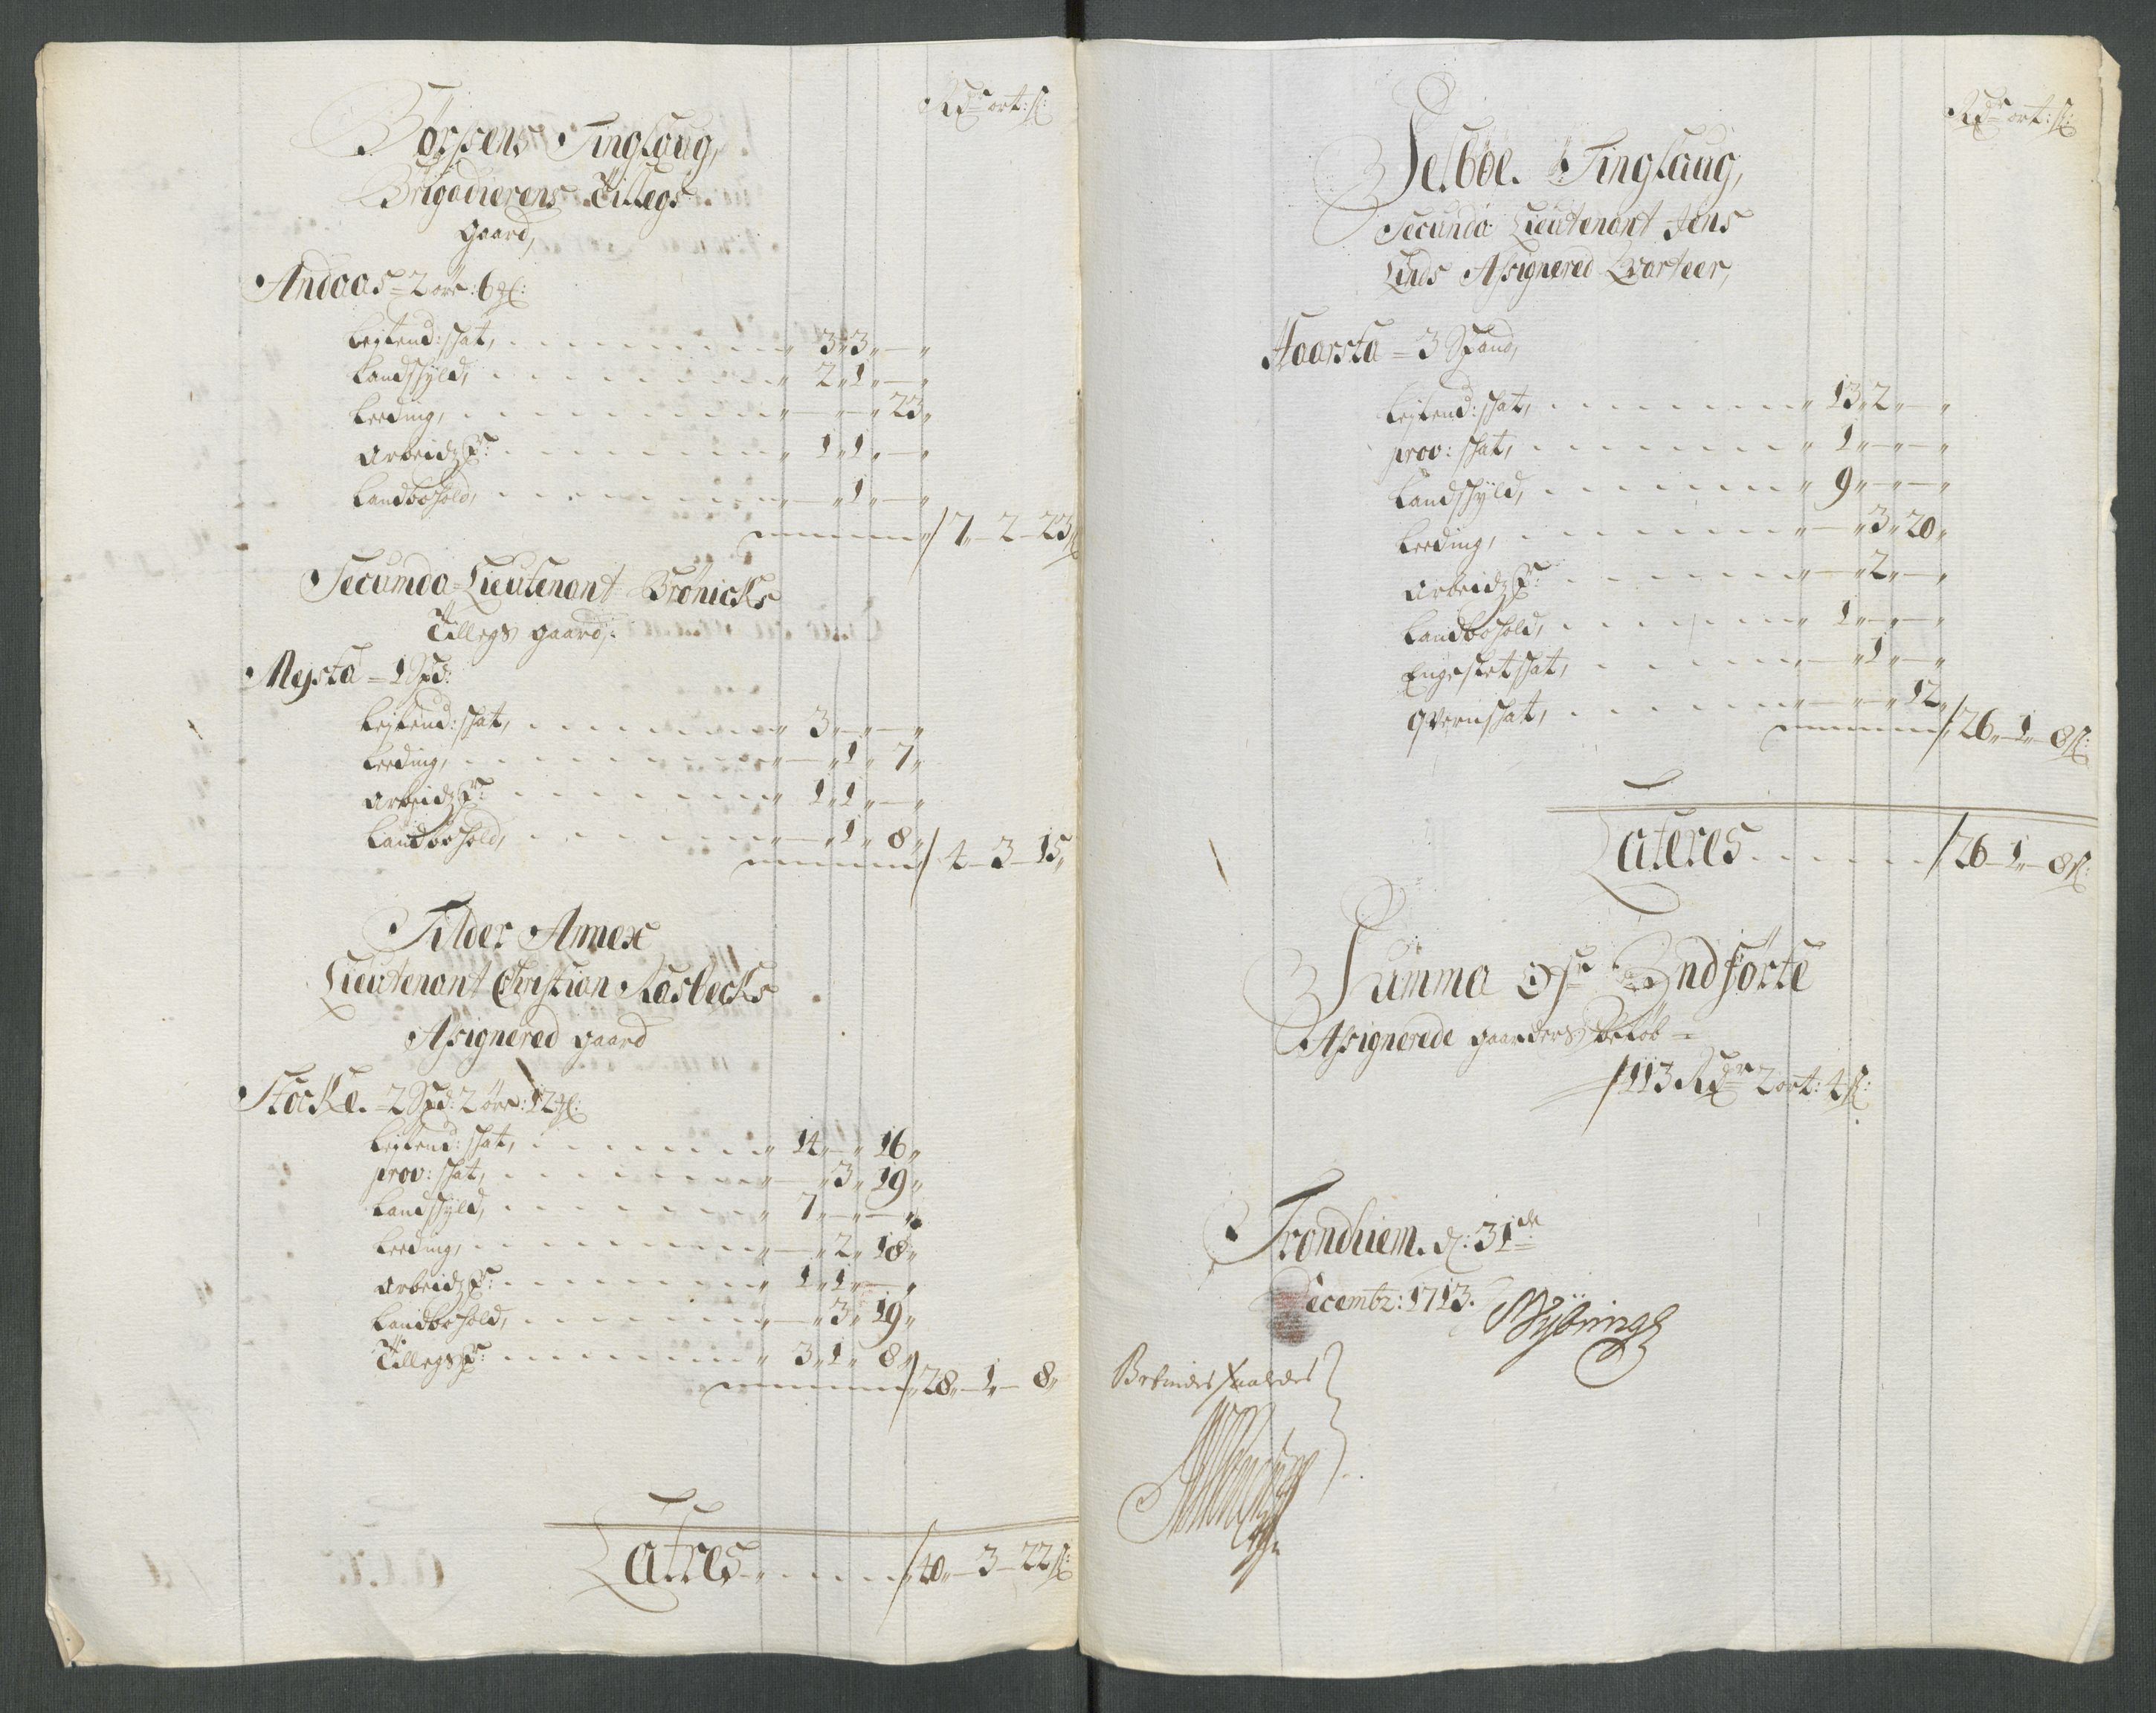 Rdr ort: s:
Børssens Tinglaug,
Brigadierens Tillegs
gaard,
Andaas = 2 øre: 6 ml:
Leylend: skat, 3 " 3 " — "
Landskyld, 2 " 1 " — "
Leeding, " — " 23 "
Arbeidz P: 1 " 1 " — "
Landbohold, — " 1 " — "
/ 7 — 2 — 23 s
Secunda Lieutenant Brønicks
Tillegs gaard,
Mysta = 1 Spd:
Leylend: skat, 3 " — " — "
Leeding, — " 1 " 7 "
Arbeidz P: 1 " 1 " — "
Landbohold, — " 1 " 8 "
/ 4 — 3 — 15 "
Tilder Annex
Lieutenant Christian Rosbecks
Assignered gaard
Stocke. = 2 Spd: 2 øre: 12 ml:
Leylend: skat, 14 " — " 16 "
prov: skat, — " 3 " 19 "
Landskyld, 7 " — " — "
Leeding, — " 2 " 18 "
Arbeidz P: 1 " 1 " — "
Landbohold, — " 3 " 19 "
Tillegs P: 3 " 1 " 8 "
/ 28 " — 1 " — 8 "
Latres / 40 " — 3 — 22 s:
Rdr ort: s:
Selboe. Tinglaug,
Secunda Lieutenant Jens
Linds Assignered Qvarteer,
Haarsta = 3 Spand,
Leylend: skat, 13 " 2 " — "
prov: skat, 1 " — " — "
Landskyld, 9 " — " — "
Leeding, — " 3 " 20 "
Arbeidz P: — " 2 " — "
Landbohold, 1 " — " — "
Engesletskat, — " 1 " — "
Qvernskat, — " — " 12 "
/ 26 " — 1 " — 8 s:
Lateres / 26 — 1 " — 8 s:
Summa Ofr Indførte
Assignerede gaarders Beløb =
/ 113 Rdr 2 ort: 4 s:
Trondhiem. d: 31de
Decembr: 1713.